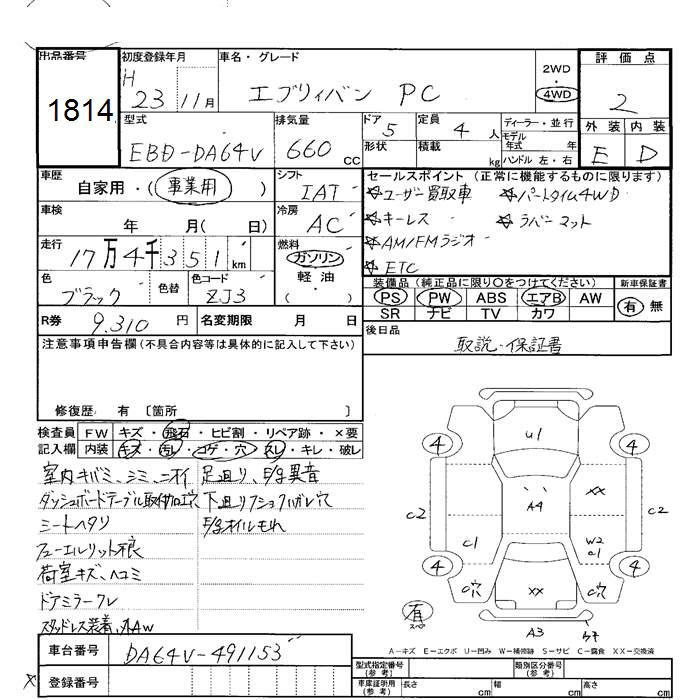 出品番号
1814
初度登録年月
H 23 11月
車名・グレード
エブリィバン PC
2WD
4WD
評価点
2
外装 内装
E D
型式
EBD-DA64V
排気量
660 cc
ドア 5
定員 4 人
形状
積載 kg
ディーラー・並行
モデル年式 年
ハンドル 左・右
車歴
自家用・(事業用)
シフト
IAT
車検
年 月( 日)
冷房
AC
走行
17万4千351km
燃料
ガソリン
軽油
( )
色
ブラック
色替
色コード
ZJ3
R券 9.310 円
名変期限 月 日
セールスポイント(正常に機能するものに限ります)
☆ユーザー買取車 ☆パートタイム4WD
☆キーレス ☆ラバーマット
☆AM/FMラジオ
☆ETC
装備品(純正品に限り〇をつけてください)
PS PW ABS エアB AW
SR ナビ TV カワ
新車保証書
有 無
後日品
取説・保証書
注意事項申告欄(不具合内容等は具体的に記入して下さい)
修復歴: 有 〔箇所 〕
検査員記入欄
FW キズ・飛石・ヒビ割・リペア跡・×要
内装 キズ・汚レ・コゲ・穴・スレ・キレ・破レ
室内キバミ、シミ、ニオイ
ダッシュボードテーブル取付加工穴
シートヘタリ
フューエルリット不良
荷室キズ、ヘコミ
ドアミラークレ
スタッドレス装着、外AW
足廻り、E/g異音
下廻り
E/gオイルもれ
車台番号 DA64V-491153
登録番号
4
4
4
4
U1
A4
XX
C2
C2
C1
W2
C1
C穴
XX
C穴
A3
有
スペア
A-キズ E-エクボ U-凹み W-補修跡 S-サビ C-腐食 XX-交換済
型式指定番号(参考)
類別区分番号(参考)
車庫証明用(参考)
長さ cm
幅 cm
高さ cm